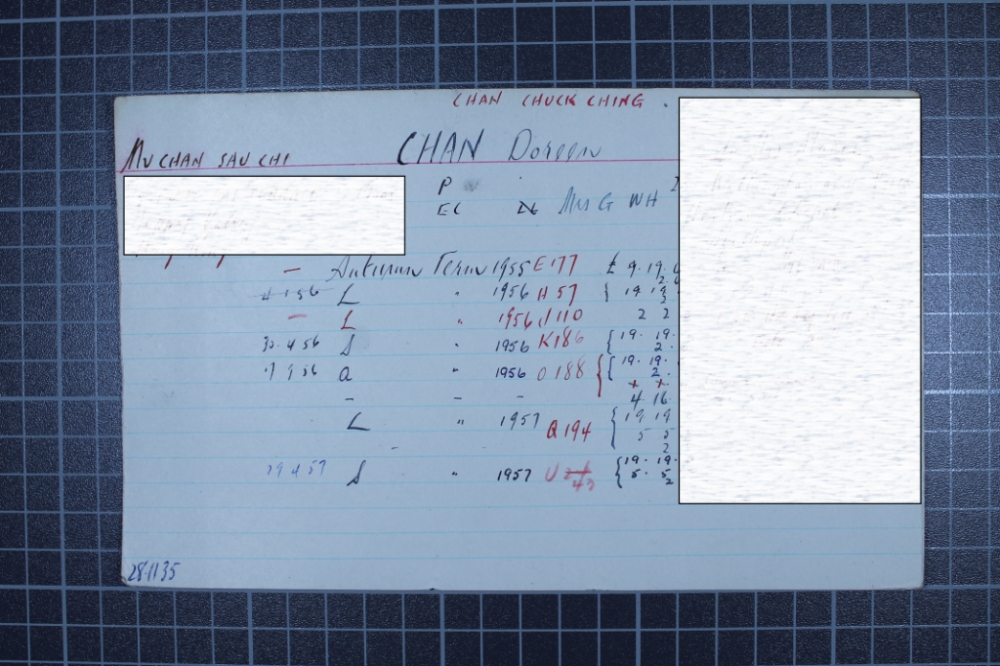 CHAN CHUCK CHING.
CHAN Doreen
Mr CHAN SAU CHI
P
EC Mrs G WH
- Autumn Term 1955 E177 £ 9.19.
4 1 56 L " 1956 H 57 { 19 19
2
- L " 1956 J110 2 2
30.4 56 S " 1956 K186 { 19. 19.
2.
17 9 56 a " 1956 O 188 { 19. 19.
2.
x x
- - - 4 16
L " 1957 Q194 { 19 19
5 5
2
29 4 57 S " 1957 U { 19. 19.
42 5. 5
2
28.11.35